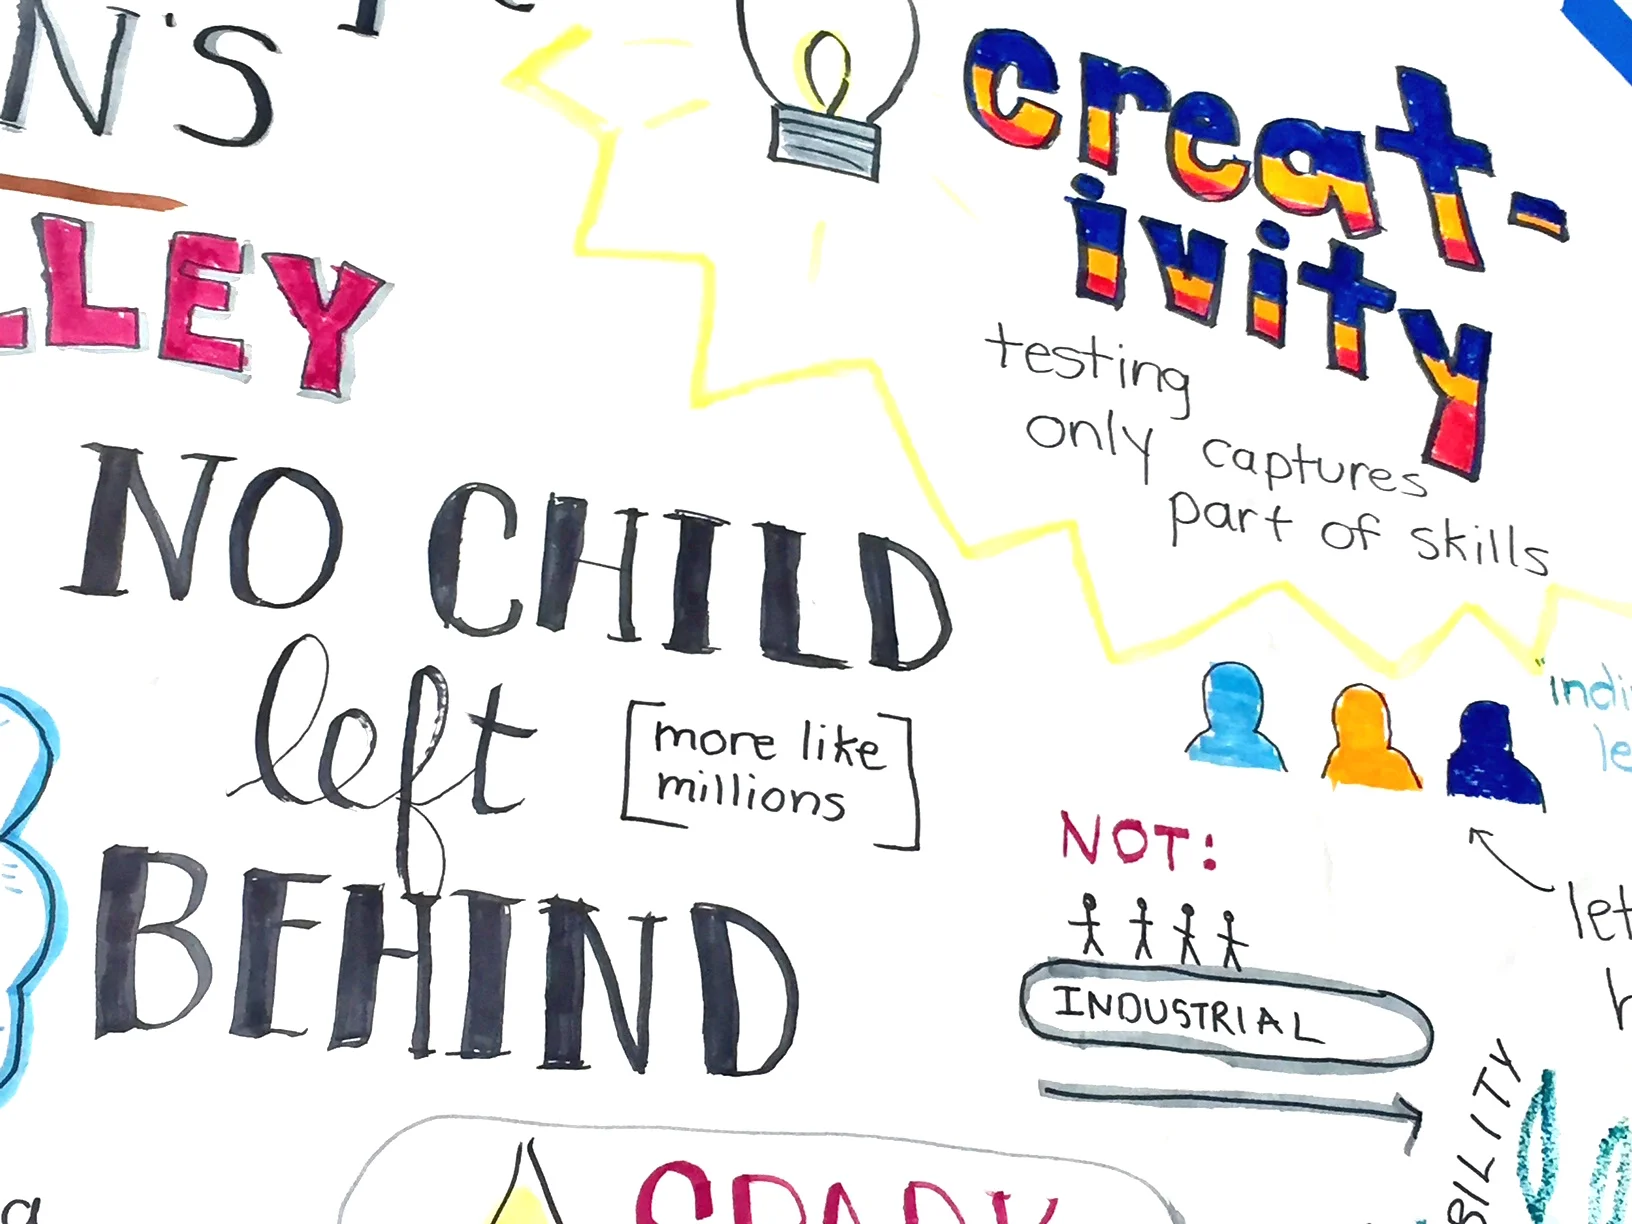 N'S
LLEY
creat-
ivity
testing
only captures
part of skills
NO CHILD
left
[more like
millions]
BEHIND
NOT:
INDUSTRIAL
SPARK